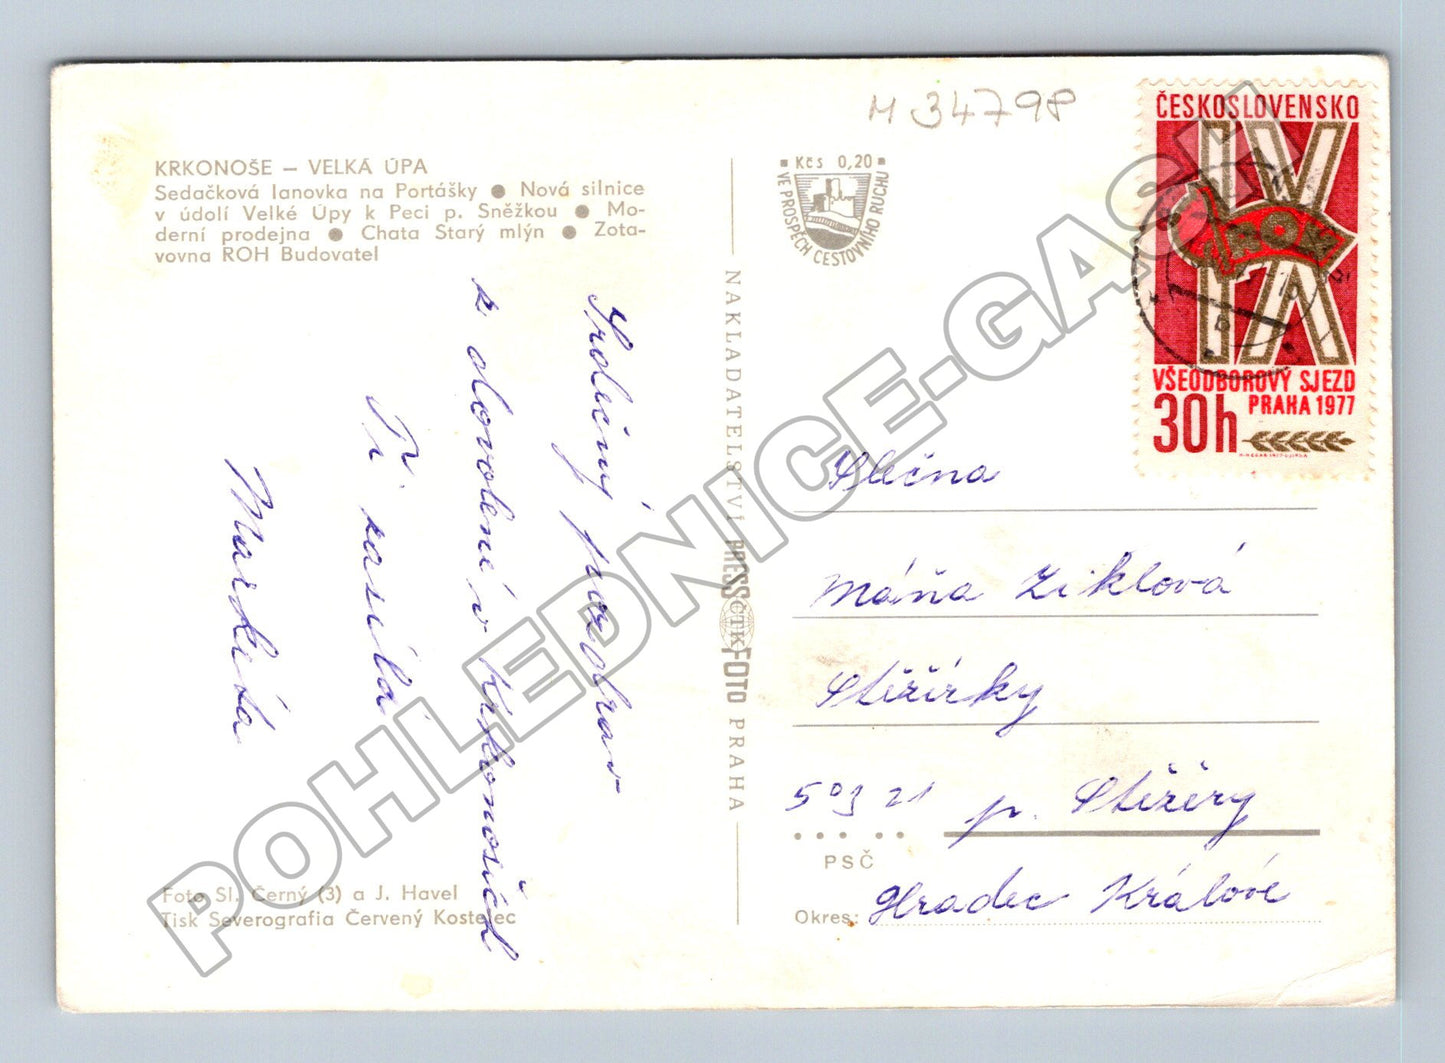 M 34798
KRKONOŠE – VELKÁ ÚPA
Sedačková lanovka na Portášky ● Nová silnice
v údolí Velké Úpy k Peci p. Sněžkou ● Mo-
derní prodejna ● Chata Starý mlýn ● Zota-
vovna ROH Budovatel
Srdečný pozdrav
z dovolené v Krkonoších
Ti zasílá
Markéta
Foto Sl. Černý (3) a J. Havel
Tisk Severografia Červený Kostelec
NAKLADATELSTVÍ PRESSFOTO PRAHA
ČTK
Kčs 0,20
VE PROSPĚCH CESTOVNÍHO RUCHU
ČESKOSLOVENSKO
IX
ROH
VŠEODBOROVÝ SJEZD
PRAHA 1977
30h
Slečna
Máňa Ziklová
Stěžírky
503 21 p. Stěžery
PSČ
Okres: Hradec Králové
POHLEDNICE-GASH